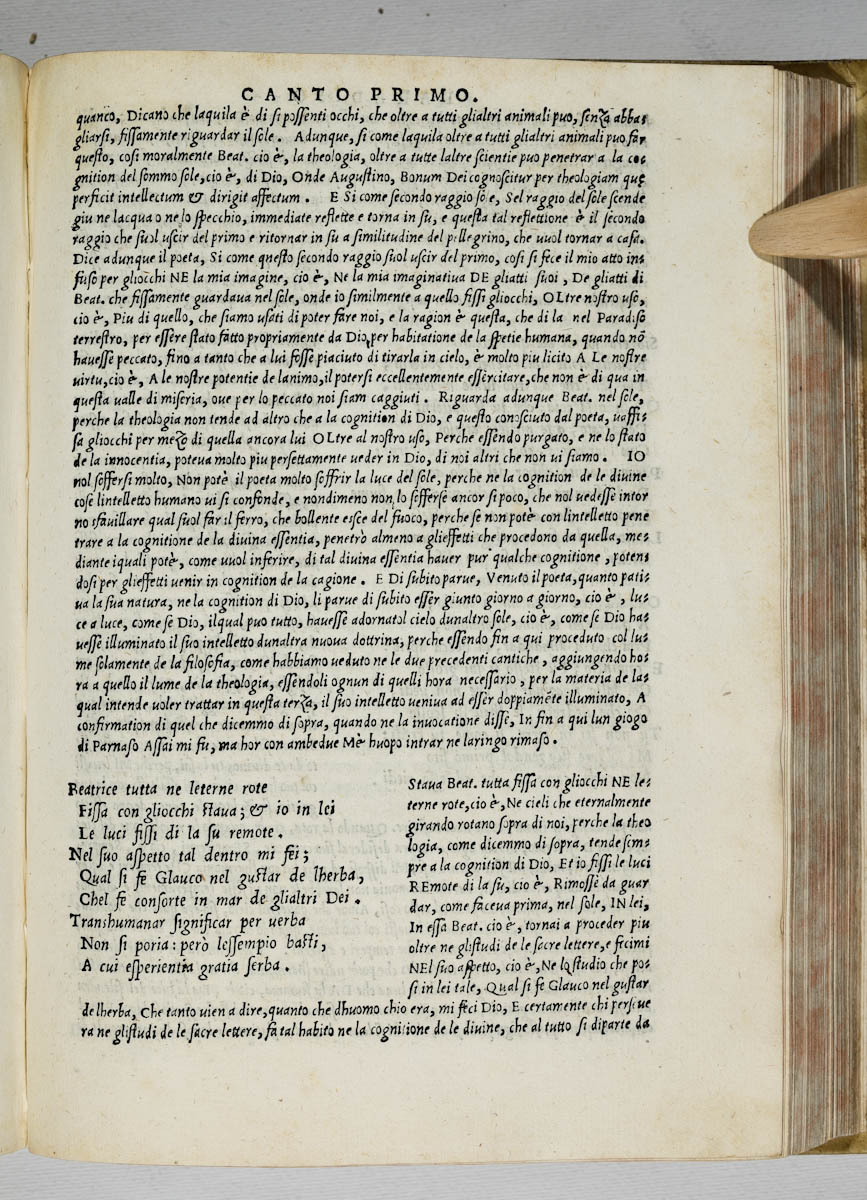 CANTO PRIMO.
quanto, Dicano che laquila è di si possenti occhi, che oltre a tutti glialtri animali puo, senza abba-
gliarsi, fissamente riguardar il sole. Adunque, si come laquila oltre a tutti glialtri animali puo far
questo, cosi moralmente Beat. cio è, la theologia, oltre a tutte laltre scientie puo penetrar a la co-
gnition del sommo sole, cio è, di Dio, Onde Augustino, Bonum Dei cognoscitur per theologiam quę
perficit intellectum & dirigit affectum. E Si come secondo raggio sole, Sel raggio del sole scende
giu ne lacqua o ne lo specchio, immediate reflette e torna in su, e questa tal reflettione è il secondo
raggio che suol uscir del primo e ritornar in su a similitudine del pellegrino, che uuol tornar a casa.
Dice adunque il poeta, Si come questo secondo raggio suol uscir del primo, cosi si fece il mio atto in-
fuso per gliocchi NE la mia imagine, cio è, Ne la mia imaginatiua DE gliatti suoi, De gliatti di
Beat. che fissamente guardaua nel sole, onde io similmente a quello fissi gliocchi, OLtre nostro uso,
cio è, Piu di quello, che siamo usati di poter fare noi, e la ragion è questa, che di la nel Paradiso
terrestro, per essere stato fatto propriamente da Dio per habitatione de la spetie humana, quando nō
hauesse peccato, fino a tanto che a lui fosse piaciuto di tirarla in cielo, è molto piu licito A Le nostre
uirtu, cio è, A le nostre potentie de lanimo, il potersi eccellentemente essercitare, che non è di qua in
questa ualle di miseria, oue per lo peccato noi siam caggiuti. Riguarda adunque Beat. nel sole,
perche la theologia non tende ad altro che a la cognition di Dio, e questo conosciuto dal poeta, uaffi-
sa gliocchi per mezo di quella ancora lui OLtre al nostro uso, Perche essendo purgato, e ne lo stato
de la innocentia, poteua molto piu perfettamente ueder in Dio, di noi altri che non ui siamo. IO
nol soffersi molto, Non potè il poeta molto soffrir la luce del sole, perche ne la cognition de le diuine
cose lintelletto humano ui si confonde, e nondimeno non lo sofferse ancor si poco, che nol uedesse intor
no sfauillare qual suol far il ferro, che bollente esce del fuoco, perche se non potè con lintelletto pene
trare a la cognitione de la diuina essentia, penetrò almeno a glieffetti che procedono da quella, me-
diante iquali potè, come uuol inferire, di tal diuina essentia hauer pur qualche cognitione, poten-
dosi per glieffetti uenir in cognition de la cagione. E Di subito parue, Venuto il poeta, quanto pati-
ua la sua natura, ne la cognition di Dio, li parue di subito esser giunto giorno a giorno, cio è, lu-
ce a luce, come se Dio, ilqual puo tutto, hauesse adornatol cielo dunaltro sole, cio è, come se Dio ha-
uesse illuminato il suo intelletto dunaltra nuoua dottrina, perche essendo fin a qui proceduto col lu-
me solamente de la filosofia, come habbiamo ueduto ne le due precedenti cantiche, aggiungendo ho-
ra a quello il lume de la theologia, essendoli ognun di quelli hora necessario, per la materia de la-
qual intende uoler trattar in questa terza, il suo intelletto ueniua ad esser doppiamēte illuminato, A
confirmation di quel che dicemmo di sopra, quando ne la inuocatione disse, In fin a qui lun giogo
di Parnaso Assai mi fu, ma hor con ambedue Mè huopo intrar ne laringo rimaso.
Beatrice tutta ne leterne rote
Fissa con gliocchi staua; & io in lei
Le luci fissi di la su remote.
Nel suo aspetto tal dentro mi fei;
Qual si fè Glauco nel gustar de lherba,
Chel fè consorte in mar de glialtri Dei.
Transhumanar significar per uerba
Non si poria: però lessempio basti,
A cui esperientia gratia serba.
Staua Beat. tutta fissa con gliocchi NE le-
terne rote, cio è, Ne cieli che eternalmente
girando rotano sopra di noi, perche la theo
logia, come dicemmo di sopra, tende sem-
pre a la cognition di Dio, Et io fissi le luci
REmote di la su, cio è, Rimosse da guar
dar, come faceua prima, nel sole, IN lei,
In essa Beat. cio è, tornai a proceder piu
oltre ne glistudi de le sacre lettere, e fecimi
NEl suo aspetto, cio è, Ne lo studio che po-
si in lei tale, Qual si fè Glauco nel gustar
de lherba, Che tanto uien a dire, quanto che dhuomo chio era, mi feci Dio, E certamente chi perseue
ra ne glistudi de le sacre lettere, fa tal habito ne la cognitione de le diuine, che al tutto si diparte da